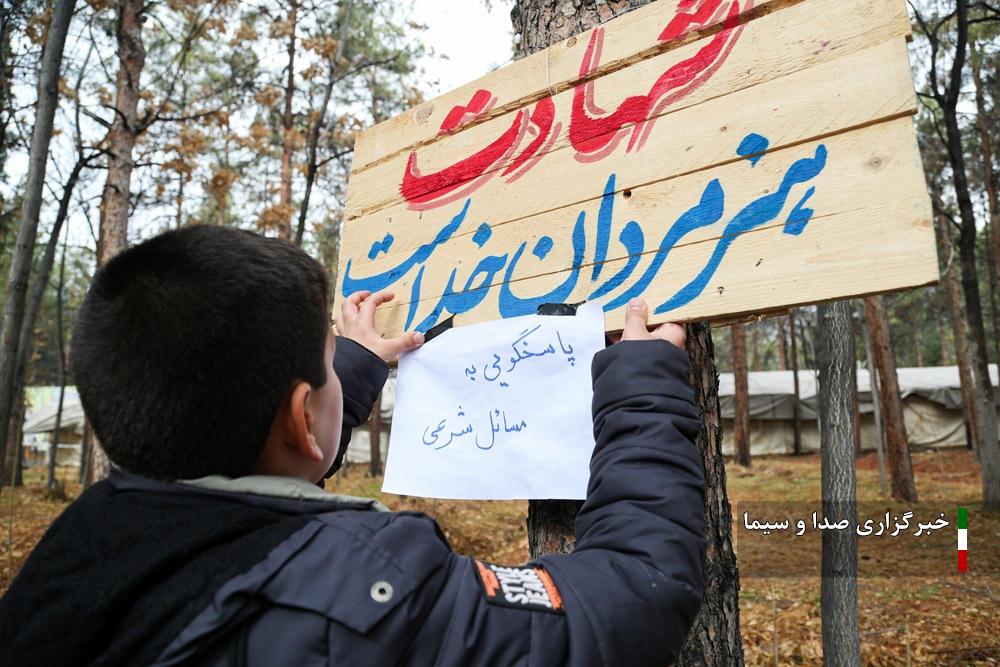 شهادت
هنر مردان خداست
پاسخگویی به
مسائل شرعی
STYLE
JEANS
خبرگزاری صدا و سیما